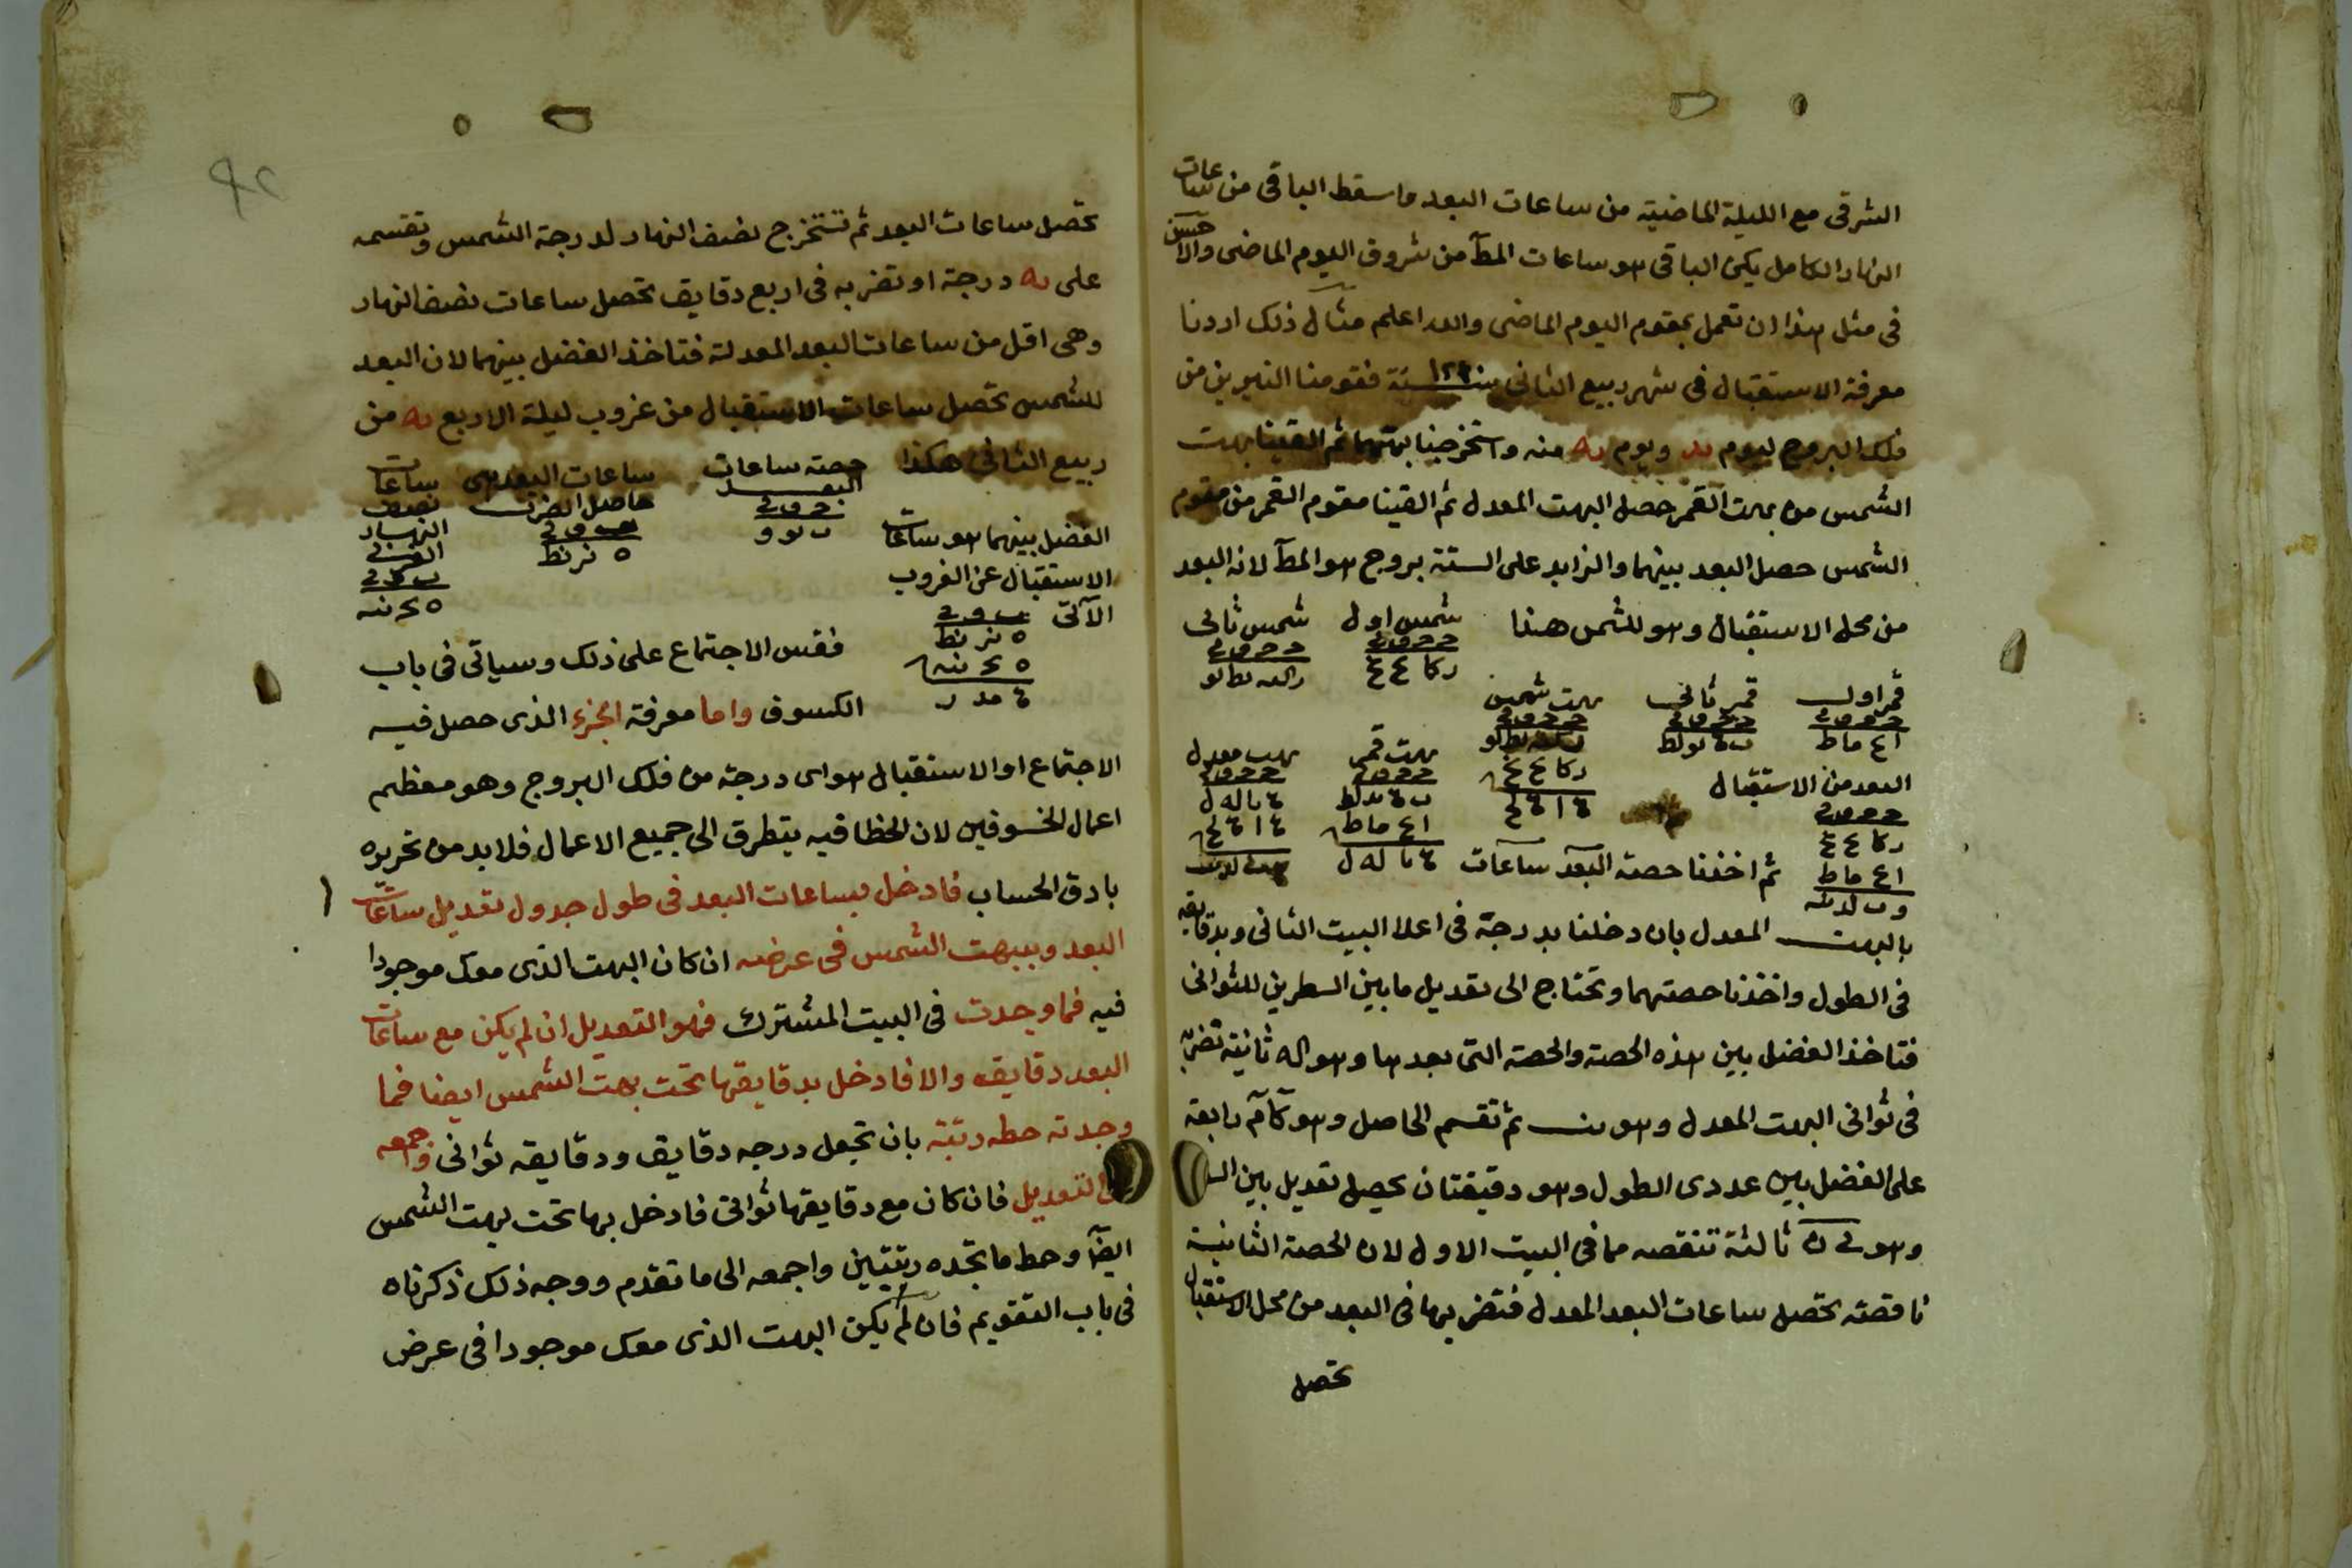 الشرقى مع الليلة الماضية من ساعات البعد واسقط الباقى من ساعات
النهار الكامل يكن الباقى هو ساعات المط من شروق اليوم الماضى والاحسن
فى مثل هذا ان تعمل بمقوم اليوم الماضى والله اعلم مثال ذلك اردنا
معرفة الاستقبال فى شهر ربيع الثانى سنة فقومنا النيرين من
فلك البروج ليوم يد ويوم يه منه واستخرجنا بهتهما ثم القينا بهت
الشمس من بهت القمر حصل البهت المعدل ثم القينا مقوم القمر من مقوم
الشمس حصل البعد بينهما والزايد على الستة بروج هو المط لانه البعد
من محل الاستقبال وهو للشمس هذا شمس اول شمس ثانى
قمر اول قمر ثانى بهت شمس
بهت قمر بهت معدل
البعد من الاستقبال
ثم اخذنا حصة البعد ساعات
بالبهت المعدل بان دخلنا بدرجة فى اعلا البيت الثانى وبدقايقه
فى الطول واخذنا حصتهما وتحتاج الى تعديل ما بين السطرين للثوانى
فتاخذ الفضل بين هذه الحصة والحصة التى بعدها وهو اله ثانية تضربه
فى ثوانى البهت المعدل وهو ثم تقسم الحاصل وهو رابعة
على الفضل بين عددى الطول وهو دقيقتان يحصل تعديل بين
وهو ثالثة تنقصه مما فى البيت الاول لان الحصة الثانية
ناقصة تحصل ساعات البعد المعدل فتضربها فى البعد من محل الاستقبال
تحصل
تحصل ساعات البعد ثم تستخرج نصف النهار لدرجة الشمس وتقسمه
على يه درجة او تضربه فى اربع دقايق تحصل ساعات نصف النهار
وهى اقل من ساعات البعد المعدلة فتاخذ الفضل بينهما لان البعد
للشمس تحصل ساعات الاستقبال من غروب ليلة الاربع يه من
ربيع الثانى هكذا حصة ساعات البعد ساعات البعد هى حاصل الضرب ساعات نصف النهار
الفضل بينهما هو ساعات
الاستقبال عن الغروب
الآتى
فقس الاجتماع على ذلك وسياتى فى باب
الكسوف واما معرفة الجزء الذى حصل فيه
الاجتماع او الاستقبال هو اى درجة من فلك البروج وهو معظم
اعمال الخسوفين لان الخطا فيه يتطرق الى جميع الاعمال فلا بد من تحريره
بادق الحساب فادخل بساعات البعد فى طول جدول تعديل ساعات
البعد وببهت الشمس فى عرضه ان كان البهت الذى معك موجودا
فيه فما وجدت فى البيت المشترك فهو التعديل ان لم يكن مع ساعات
البعد دقايقه والا فادخل بدقايقها تحت بهت الشمس ايضا فما
وجدته حطه رتبة بان تجعل درجه دقايق ودقايقه ثوانى واجمعه
التعديل فان كان مع دقايقها ثوانى فادخل بها تحت بهت الشمس
ايضا وحط ما تجده رتبتين واجمعه الى ما تقدم ووجه ذلك ذكرناه
فى باب التقويم فان لم يكن البهت الذى معك موجودا فى عرض